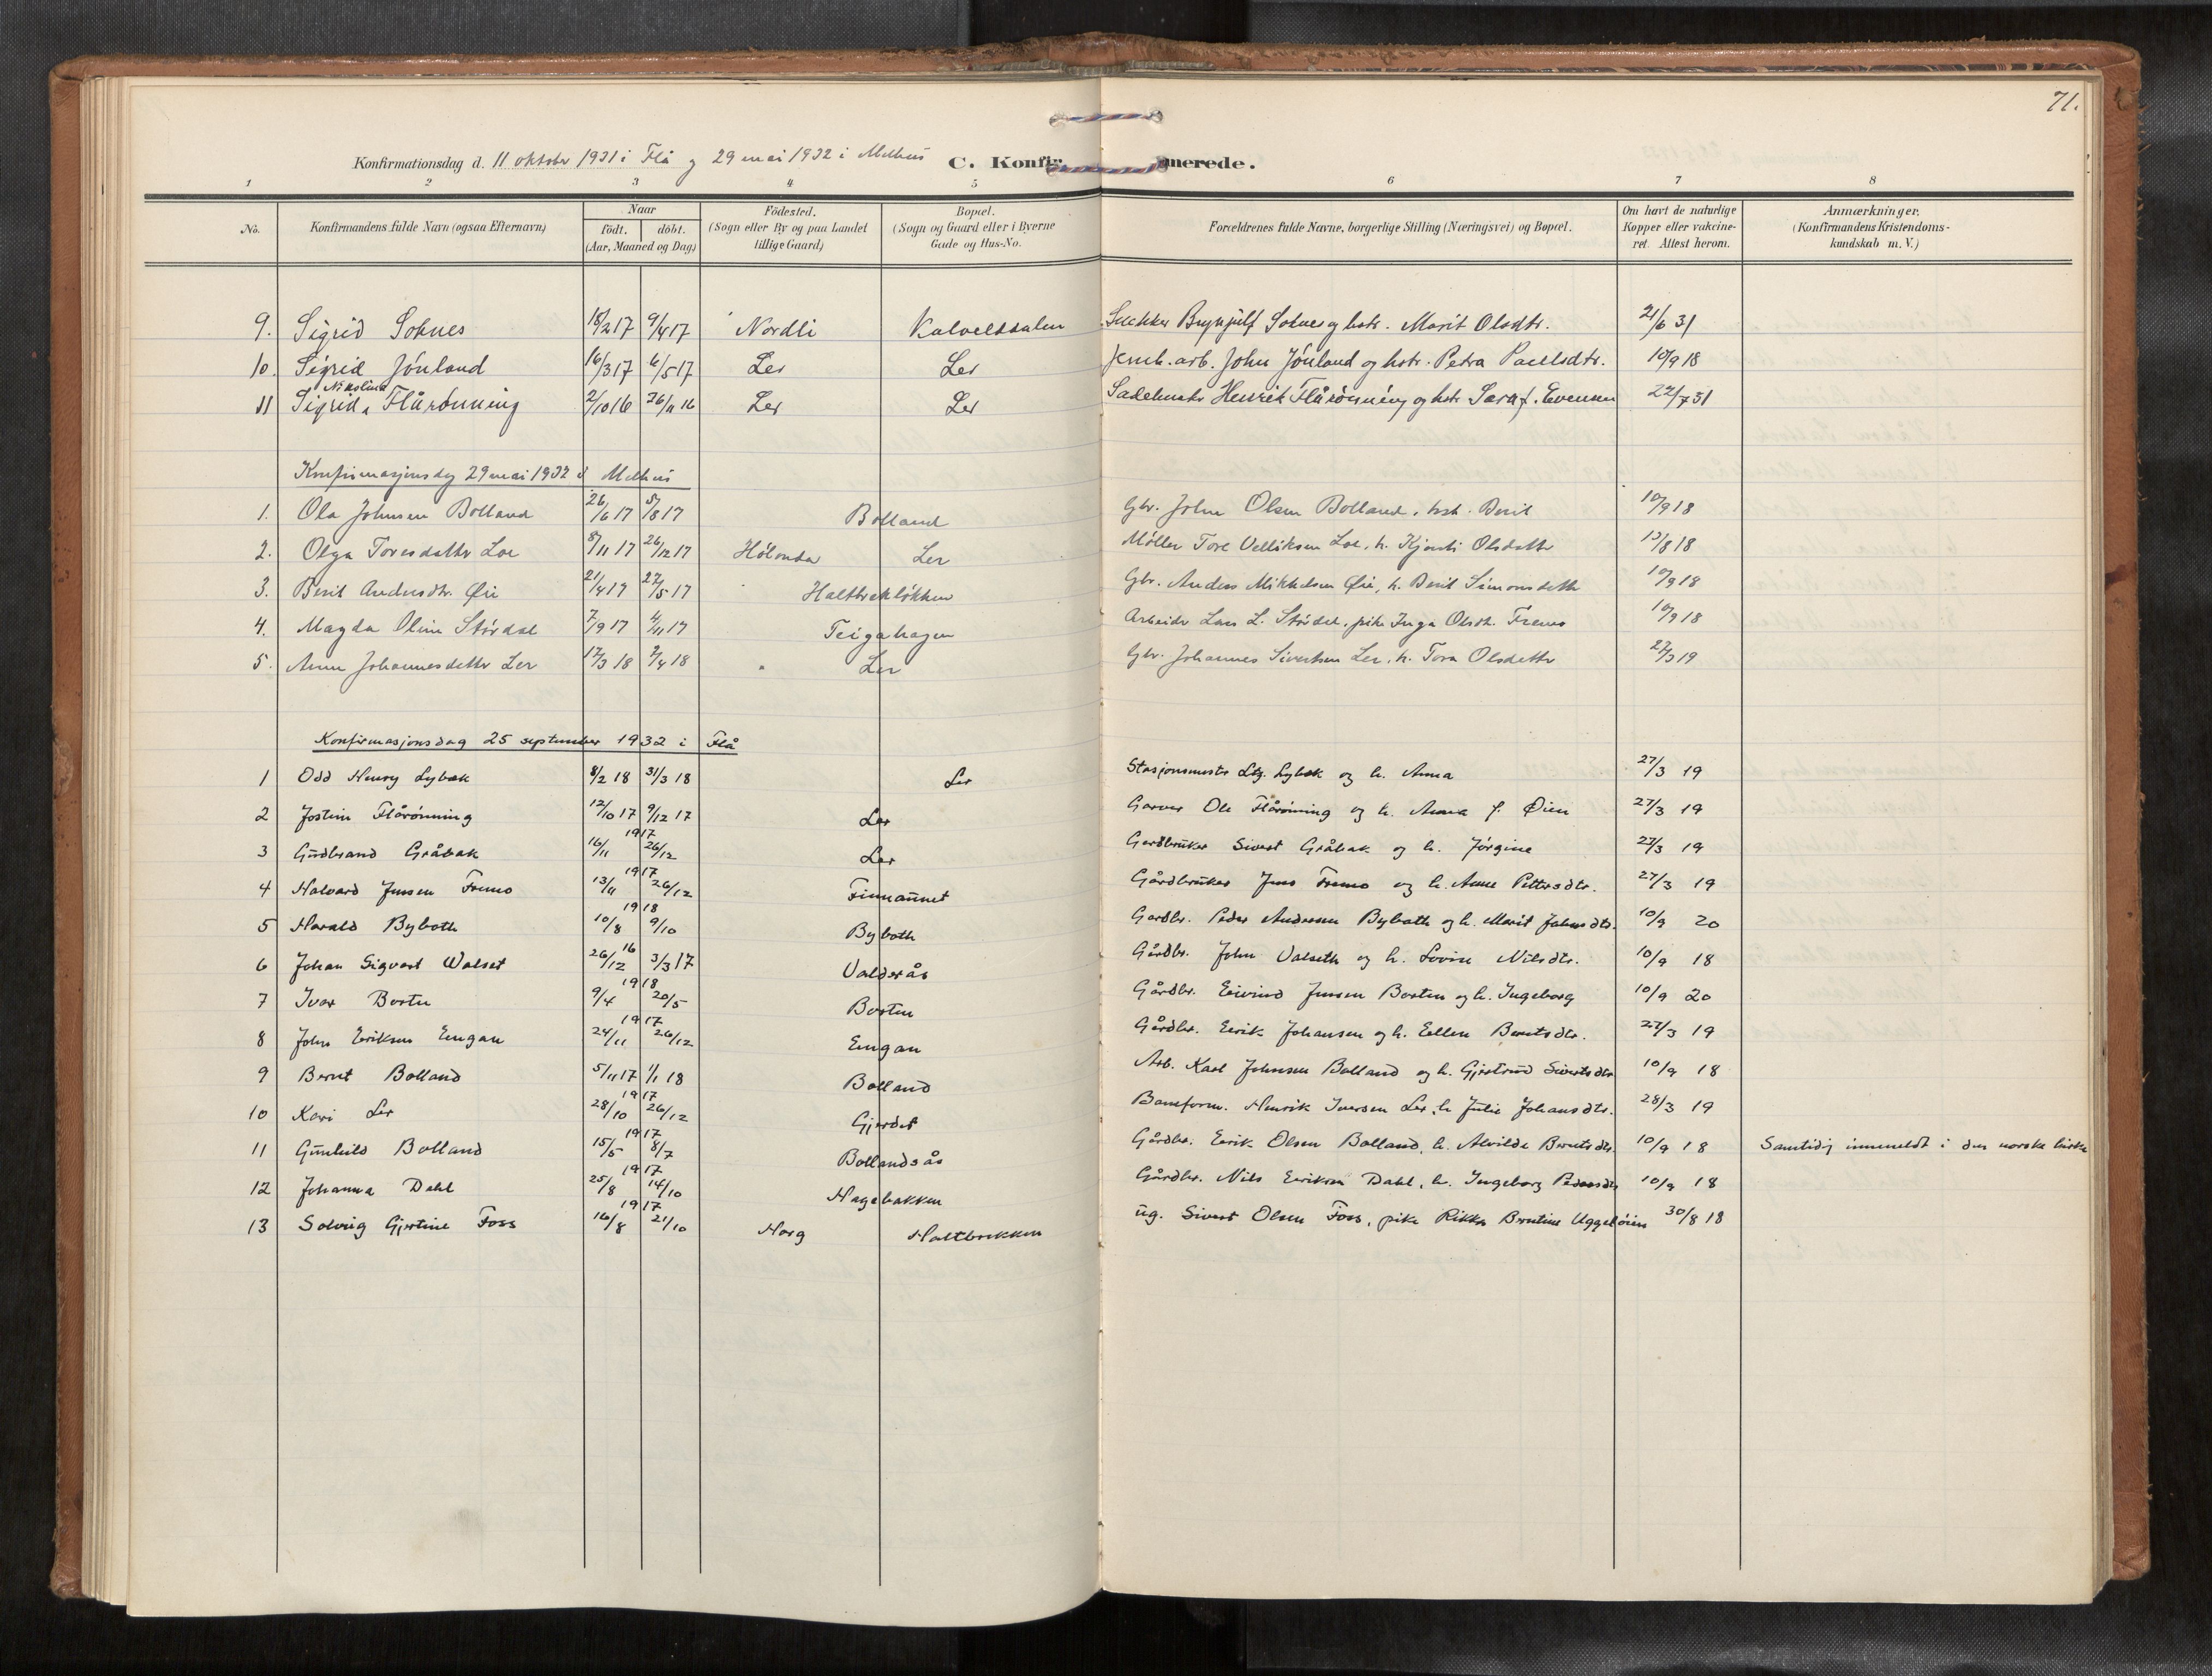 71.
Konfirmationsdag d. 11 oktober 1931 i Flå og 29 mai 1932 i Melhus C. Konfirmerede.
1 2 3 4 5 6 7 8
No. Konfirmandens fulde Navn (ogsaa Efternavn) Naar födt. döbt. (Aar, Maaned og Dag) Födested. (Sogn eller By og paa Landet tillige Gaard) Bopæl. (Sogn og Gaard eller i Byerne Gade og Hus-No. Forældrenes fulde Navne, borgerlige Stilling (Næringsvei) og Bopæl. Om havt de naturlige Kopper eller vakcineret. Attest herom. Anmærkninger. (Konfirmandens Kristendomskundskab m. V.)
9. Sigrid Soknes 18/2 17 9/4 17 Nordli Snekker Brynjulf Soknes og hstr. Marit Olsdtr. 21/6 31
10. Sigrid Jönland 16/3 17 6/5 17 Ler Ler Jernb. arb. John Jönland og hstr. Petra Paulsdtr. 10/9 18
11 Sigrid Nikoline Flårönning 2/10 16 26/11 16 Ler Ler Henrik Flårönning og hstr Sara f. Evensen 22/7 31
Konfirmasjonsdag 29 mai 1932 i Melhus
1. Ola Johnsen Bolland 26/6 17 5/8 17 Bolland Gbr. John Olsen Bolland, hst. Berit 10/9 18
2. Olga Toresdatter Loe 8/11 17 26/12 17 Hölonda Ler Möller Tore Loe, h. Kjersti Olsdatter 13/8 18
3. Berit Andersdtr. Øie 21/4 17 27/5 17 Haltbrekløkken Gbr. Anders Mikkelsen Øie, h. Berit Simonsdatter 10/9 18
4. Magda Oline Stördal 7/9 17 4/11 17 Teigahagen Arbeider Lars L. Stördal, pike Inga Olsdt. Fremo 10/9 18
5. Anne Johannesdatter Ler 17/3 18 7/4 18 " Ler Gbr. Johannes Sivertsen Ler, h. Tora Olsdatter 27/3 19
Konfirmasjonsdag 25 september 1932 i Flå
1 Odd Henry Lybæk 8/2 18 31/3 18 Ler Stasjonsmester Lybæk og h. Anna 27/3 19
2 Jostein Flårönning 12/10 17 9/12 17 Ler Garver Ole Flårönning og h. Anna f. Øien 27/3 19
3 Gudbrand Gråbak 16/11 1917 26/12 Ler Gardbruker Sivert Gråbak og h. Jörgine 27/3 19
4 Halvard Jensen Fremo 13/11 1917 26/12 Finnaunet Gårdbruker Jens Fremo og h. Anne Pettersdtr. 27/3 19
5 Harald Byboth 10/8 1918 9/10 Byboth Gardbr. Peder Andresen Byboth og h. Marit Johnsdtr. 10/9 20
6 Johan Sigvart Walset 26/12 16 3/3 17 Valderås Gårdbr. John Valseth og h. Lovise Nilsdtr. 10/9 18
7 Ivar Borten 9/4 1918 20/5 Borten Gårdbr. Eivind Jensen Borten og h. Ingeborg 10/9 20
8 John Eriksen Engan 24/11 1917 26/12 Engan Gårdbr. Eirik Johansen og h. Ellen Berntsdtr. 27/3 19
9 Bernt Bolland 5/11 17 1/1 18 Bolland Arb. Karl Johnsen Bolland og h. Gjertrud Sivertsdtr 10/9 18
10 Kari Ler 28/10 1917 26/12 Gjerdet Baneform. Henrik Iversen Ler, h Julie Johansdtr. 28/3 19
11 Gunhild Bolland 15/5 1917 8/7 Bollandsås Gårdbr. Eirik Olsen Bolland, h. Alvilde Berntsdtr. 10/9 18 Samtidig innmeldt i den norske kirke
12 Johanna Dahl 25/8 1917 14/10 Hagebakken Gårdbr. Nils Eriksen Dahl, h. Ingeborg Pedersdtr 10/9 18
13 Solveig Gjertine Foss 16/8 1917 21/10 Horg Haltbrekken ug. Sivert Olsen Foss, pike Rikka Berntine Uggelöien 30/8 18